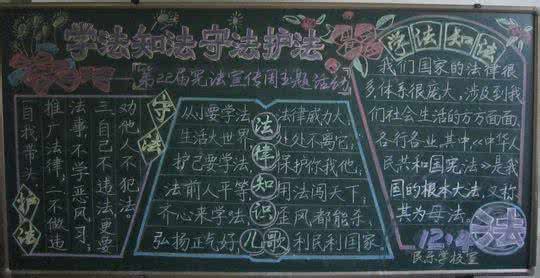 学法知法守法护法
第22届宪法宣传周主题活动
守法
自我带头
推广法律,二不做违
法事,不学恶风习;
三自己不违法更要
劝他人不犯法。
护法
法律知识儿歌
从小要学法,法律威力大,
生活大世界,处处不离它,
护己要学法,保护你我他,
法前人平等,用法闯天下,
齐心来学法,歪风都能杀,
弘扬正气好,利民利国家
学法知法
我们国家的法律很
多体系很庞大,涉及到我
们社会生活的方方面面,
各行各业,其中《中华人
民共和国宪法》是我
国的根本大法,又称
其为母法。
12.4
法